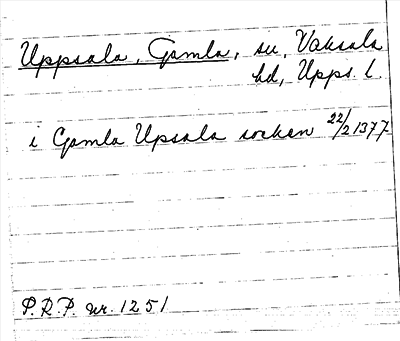 Uppsala, Gamla, su, Vaksala
hd, Upps. l.
i Gamla Upsala socken 22/2 1377
P.R.P. nr. 1251